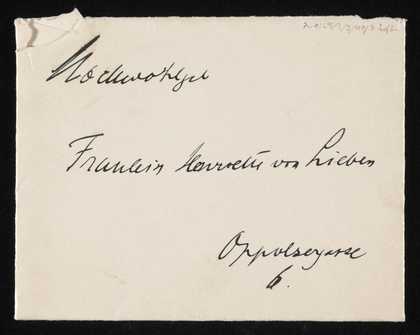 Hochwohlgel
Fraulein Henriette von Lieben
Oppolzergasse
6.